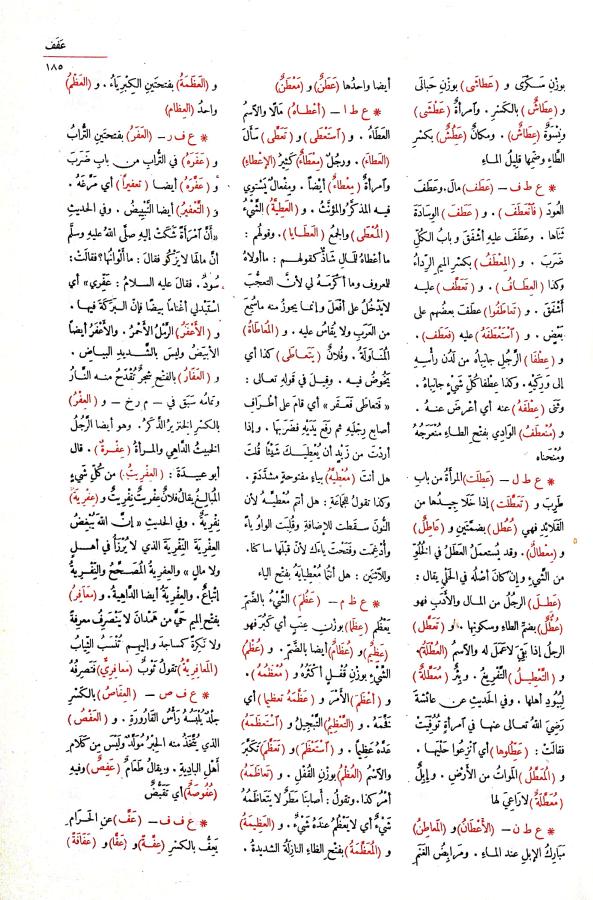 عَفَفَ
١٨٥
بوزْنِ سَكْرَى و (عَطَاشَى) بوزْنِ حَبالَى
و (عِطَاشٌ) بالكَسْرِ . وآمرأةٌ (عَطْشَى)
ونِسْوَةٌ (عِطَاشٌ) . ومكانٌ (عَطِشٌ) بكسْرِ
الطَّاءِ وضَمِّها قليلُ الماءِ
* ع ط ف – (عَطَف) مالَ، وعَطَفَ
العُودَ (فَانْعَطَفَ) . و (عَطَفَ) الوِسَادَةَ
ثَنَاها . وعَطَفَ عليهِ أَشْفَقَ وبابُ الكُلِّ
ضَرَبَ . و (المِعْطَفُ) بكسْرِ الميمِ الرِّداءُ
وكذا (العِطَافُ) . و (تَعَطَّفَ) عليه
أَشْفَقَ . و (تعاطَفُوا) عطَفَ بعضُهم على
بَعْضٍ . و (آسْتَعْطَفَهُ) عليهِ (فعَطَف) .
و (عِطْفَا) الرَّجُلِ جانِبَاهُ من لَدُنْ رأْسِهِ
إلى وَرِكَيْهِ . وكذا عِطْفَا كُلِّ شَيْءٍ جانِبَاهُ .
وثَنَى (عِطْفَهُ) عنه أي أعْرَضَ عنهُ .
و (مُنْعَطَفُ) الوَادِي بفتْحِ الطاءِ مُنْعَرَجُهُ
ومُنْحَناه
* ع ط ل – (عَطِلَت) المرأةُ من بابِ
طَرِبَ و (تَعَطَّلَت) إذا خَلَا جِيدُها من
القَلائِدِ فهي (عُطُل) بضَمَّتَينِ و (عاطِلٌ)
و (مِعطالٌ) . وقد يُستعمَلُ العَطَلُ في الخُلُوِّ
من الشَّيْءِ وإن كانَ أصْلُه في الحَلْيِ يقال :
(عَطِلَ) الرجُلُ من المالِ والأدَبِ فهو
(عُطُلٌ) بضمِّ الطاءِ وسكونِها . و (تَعَطَّل)
الرجلُ إذا بَقِيَ لا عَمَلَ له والاسمُ (العُطْلَة) .
و (التَّعْطِيلُ) التَّفْرِيغُ . وبِئْرٌ (مُعَطَّلَةٌ)
لِبُيُودِ أهلِها . وفي الحديثِ عن عائشةَ
رَضِيَ اللهُ تعالى عنها في آمرأةٍ تُوُفِّيَتْ
فقالتْ : (عَطِّلُوها) أي آنْزِعُوا حَلْيَها .
و (المُعَطَّلُ) المَوَاتُ من الأرْضِ . وإِبِلٌ
(مُعَطَّلَةٌ) لا رَاعِيَ لها
* ع ط ن – (الأَعْطَانُ) و (المعاطِنُ)
مَبَارِكُ الإبلِ عند الماءِ . ومَرَابِضُ الغَنَمِ
أيضا واحدُها (عَطَنٌ) و (مَعْطَنٌ)
* ع ط ا – (أعْطَاهُ) مَالًا والاسْمُ
العَطَاءُ . و (آسْتَعْطَى) و (تَعَطَّى) سَأَلَ
(العَطاءَ) . ورجُلٌ (مِعْطَاءٌ) كثيرُ (الإعْطَاءِ)
وآمرأةٌ (مِعْطاءٌ) أيضاً . ومِفْعالٌ يَسْتَوِي
فيه المذكَّرُ والمؤنَّثُ . و (العَطِيَّةُ) الشَّيْءُ
(المُعْطَى) والجمعُ (العَطَايا) . وقولُهم :
ما أعْطاهُ لِلْمالِ شاذٌّ كقولِهم : ما أوْلَاهُ
للمعروفِ وما أكْرَمَهُ لي لأنَّ التعجُّبَ
لا يَدْخُلُ على أفْعَلَ وإنما يجوزُ منه ما سُمِعَ
من العَرَبِ ولا يُقاسُ عليه . و (المُعَاطاةُ)
المُنَاوَلَةُ . وفُلانٌ (يتَعَاطَى) كذا أي
يَخُوضُ فيه . وقيلَ في قولِه تعالى :
« فَتَعَاطَى فَعَقَرَ » أي قامَ على أطْرَافِ
أصابعِ رِجْلَيهِ ثم رَفَعَ يَدَيْهِ فضَرَبَها . وإذا
أردْتَ من زَيْدٍ أن يُعْطِيَكَ شَيْئًا قُلتَ
هل أنتَ (مُعْطِيَّ) بياءٍ مفتوحةٍ مشدَّدَةٍ .
وكذا تقولُ للجَماعةِ : هل أنتم مُعْطِيَّ لأن
النُّونَ سقَطت للإضافةِ وقُلِبَتِ الواوُ ياءً
وأُدْغِمَت وفَتَحْتَ ياءَك لأنَّ قبْلَها ساكنا.
وللآثنَينِ : هل أنتُما مُعْطِيَايَ بفتْحِ الياءِ
* ع ظ م – (عَظُمَ) الشَّيْءُ بالضَّمِّ
يَعْظُم (عِظَماً) بوزن عِنَبٍ أي كَبُرَ فهو
(عَظِيمٌ) و (عُظَامٌ) أيضا بالضَّمِّ . و (عُظْمُ)
الشَّيْءِ بوزن قُفْلٍ أكْثَرُه و (مُعْظَمُهُ) .
و (أعْظَمَ) الأمْرَ و (عَظَّمَهُ تعظيما) أي
فَخَّمَهُ . و (التَّعْظيمُ) التَّبْجِيلُ و (آسْتَعْظَمَهُ)
عَدَّهُ عَظِيماً . و (آسْتَعْظَمَ) و (تعَظَّمَ) تكبَّرَ
والاسْمُ (العُظْمُ) بوزنِ القُفْلِ . و (تعاظَمَهُ)
أمْرُ كذا . وتقولُ : أصابَنا مَطَرٌ لا يَتَعاظَمُهُ
شَيْءٌ أي لا يَعْظُمُ عندَهُ شَيْءٌ . و (العَظِيمَةُ)
و (المُعْظَمَةُ) بفتْحِ الظاءِ النازِلَةُ الشديدةُ .
و (العَظَمَةُ) بفتحتَينِ الكِبْرِياءُ . و (العَظْمُ)
واحدُ (العِظامِ)
* ع ف ر – (العَفَرُ) بفتحتَينِ التُّرابُ
و (عَفَرَهُ) في التُّرابِ من بابِ ضَرَبَ
و (عَفَّرَهُ) أيضا (تعفيراً) أي مَرَّغَهُ .
و (التَّعْفِيرُ) أيضا التَّبْيِيضُ . وفي الحديثِ
«أنَّ آمْرَأَةً شَكَتْ إليهِ صلَّى اللهُ عليهِ وسلَّم
أنَّ مالَها لا يَزْكُو فقالَ : ما ألْوَانُها؟ فقالتْ:
سُودٌ . فقال عليه السلامُ : عَفِّرِي» أي
اسْتَبْدِلي أغْناماً بِيضًا فإنَّ البَرَكَةَ فيها .
و (الأعْفَرُ) الرَّمْلُ الأحْمَرُ . والأعْفَرُ أيضاً
الأبيَضُ وليسَ بالشَّديدِ البياضِ .
و (العَفَارُ) بالفتْحِ شَجرٌ تُقْدَحُ منه النَّارُ
وتمامُه سَبَقَ في – م ر خ – و (العِفْرُ)
بالكسْرِ الخِنْزيرُ الذَّكَرُ . وهو أيضا الرَّجُلُ
الخَبيثُ الدَّاهِي والمرأةُ (عِفْرةٌ) . قال
أبو عبيدةَ : (العِفْرِيتُ) من كُلِّ شَيْءٍ
المُبالِغُ يقالُ فلانٌ عِفْرِيتٌ نِفْرِيتٌ و (عِفْرِيَةٌ)
نِفْرِيَةٌ . وفي الحديثِ « إنَّ اللهَ يُبْغِضُ
العِفْرِيَةَ النِّفْرِيَةَ الذي لا يُرْزَأُ في أهْلٍ
ولا مالٍ » والعِفْرِيَةُ المُصَحَّحُ والنِّفْرِيَةُ
إتْباعٌ . والعِفْرِيَةُ أيضا الداهِيَةُ . و (مَعَافِرُ)
بفتْحِ الميمِ حَيٌّ من هَمْدَانَ لا يَنْصَرِفُ معرِفةً
ولا نَكِرَةً كمساجِدَ وإليهم تُنْسَبُ الثِّيابُ
(المَعَافِرِيَّةُ) تقولُ ثوبٌ (مَعَافِرِيٌّ) فتَصرِفُهُ
* ع ف ص – (العِفَاصُ) بالكَسْرِ
جِلْدٌ يُلْبَسُهُ رَأْسُ القَارُورَةِ . و (العَفْصُ)
الذي يُتَّخَذُ منه الحِبْرُ مُوَلَّدٌ ولَيْسَ مِن كَلامِ
أهْلِ البادِيَةِ . ويقالُ طَعامٌ (عَفِصٌ) وفيه
(عُفُوصَةٌ) أي تَقَبُّضٌ
* ع ف ف – (عَفَّ) عنِ الحَرَامِ
يَعِفُّ بالكسْرِ (عِفَّةً) و (عَفًّا) و (عَفَافَةً)